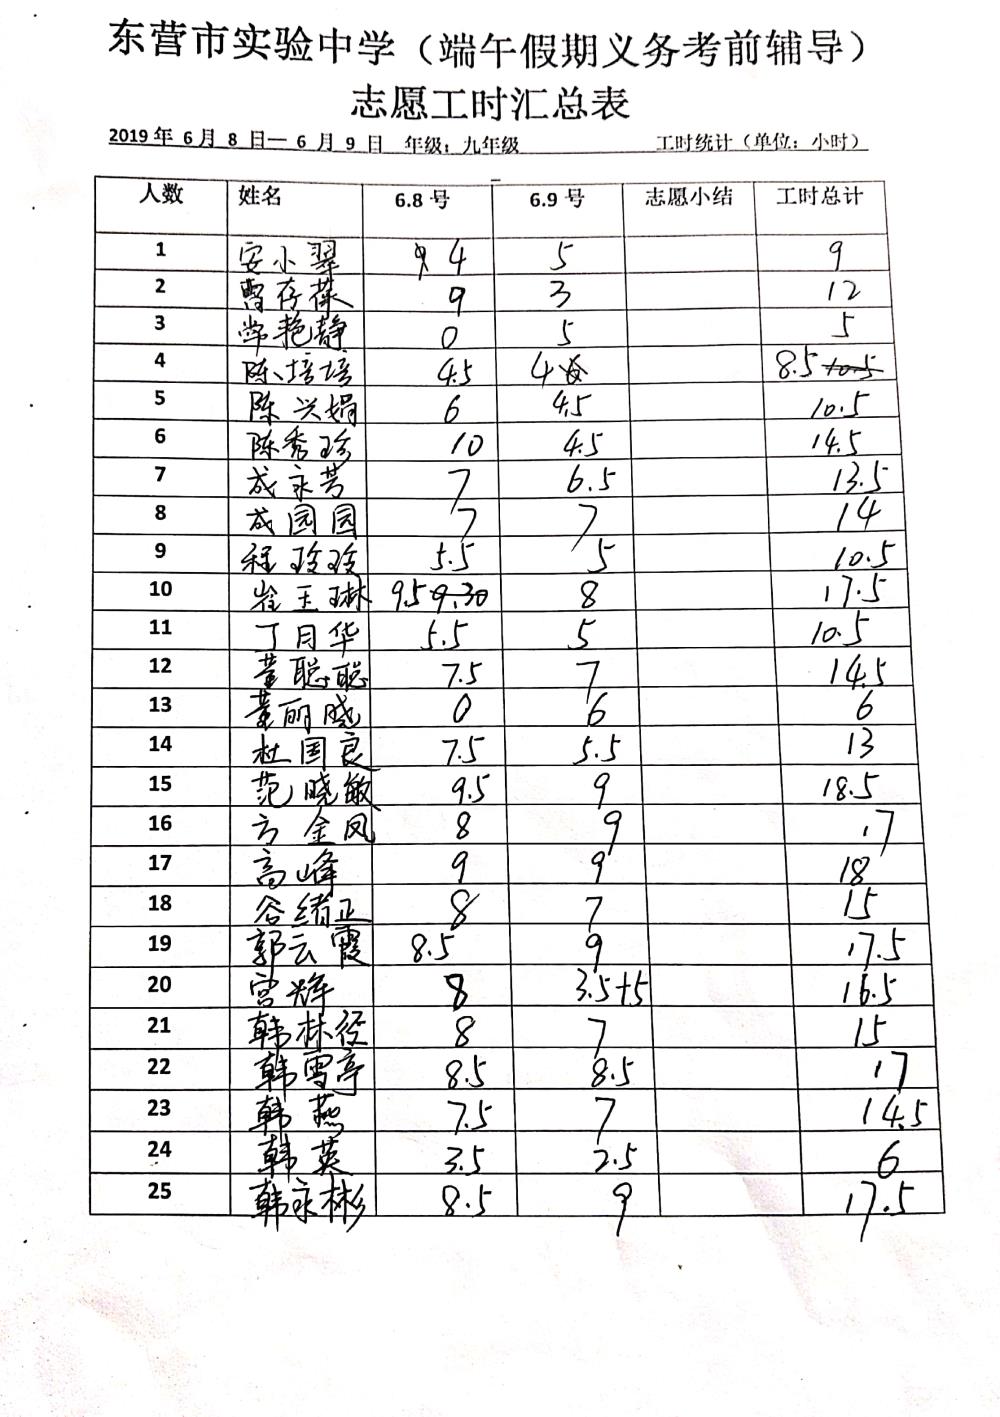 东营市实验中学（端午假期义务考前辅导）
志愿工时汇总表
2019 年 6 月 8 日— 6 月 9 日 年级：九年级 工时统计（单位：小时）
人数 姓名 6.8 号 6.9 号 志愿小结 工时总计
1 安小翠 4 5 9
2 曹存葆 9 3 12
3 常艳静 0 5 5
4 陈培培 4.5 4 8.5 10.5
5 陈兴娟 6 4.5 10.5
6 陈秀珍 10 4.5 14.5
7 成永芳 7 6.5 13.5
8 成园园 7 7 14
9 程玲玲 5.5 5 10.5
10 崔王琳 9.5 9.30 8 17.5
11 丁月华 5.5 5 10.5
12 董聪聪 7.5 7 14.5
13 董丽晓 0 6 6
14 杜国良 7.5 5.5 13
15 范晓敏 9.5 9 18.5
16 方金凤 8 9 17
17 高峰 9 9 18
18 谷绪正 8 7 15
19 郭云霞 8.5 9 17.5
20 宫辉 8 3.5+5 16.5
21 韩林径 8 7 15
22 韩雪亭 8.5 8.5 17
23 韩燕 7.5 7 14.5
24 韩英 3.5 2.5 6
25 韩永彬 8.5 9 17.5